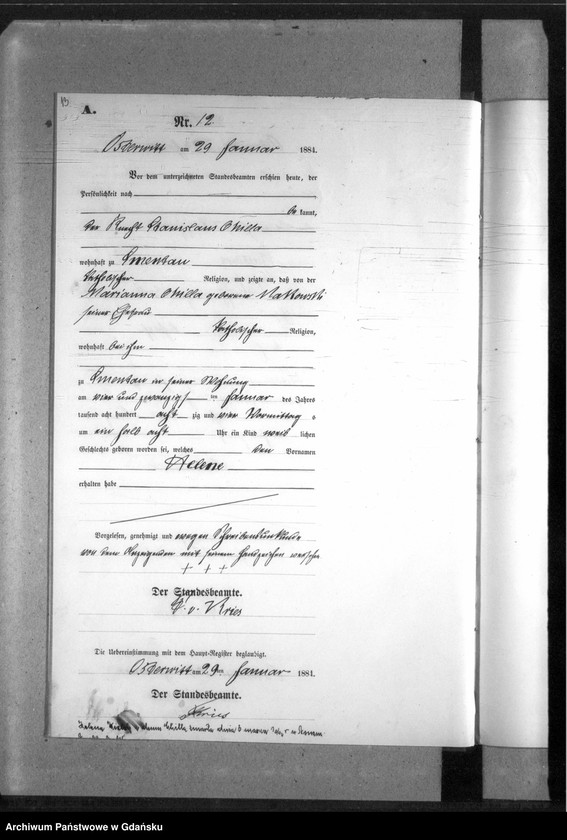 A.
Nr. 12
Osterwitt am 29 Januar 1884.
Vor dem unterzeichneten Standesbeamten erschien heute, der
Persönlichkeit nach
be kannt,
der Knecht Stanislaus
wohnhaft zu Smentau
katholischer Religion, und zeigte an, daß von der
Marianna geborene
seiner Ehefrau
katholischer Religion,
wohnhaft bei ihm
zu Smentau in seiner Wohnung
am vier und zwanzigsten Januar des Jahres
tausend acht hundert acht zig und vier Vormittag s
um ein halb acht Uhr ein Kind weib lichen
Geschlechts geboren worden sei, welches den Vornamen
Helene
erhalten habe
Vorgelesen, genehmigt und wegen Schreibensunkunde
von dem Anzeigenden mit seinem Handzeichen versehen
+ + +
Der Standesbeamte.
v. Kries
Die Uebereinstimmung mit dem Haupt-Register beglaubigt.
Osterwitt am 29 ten Januar 1884.
Der Standesbeamte.
Kries
Archiwum Państwowe w Gdańsku